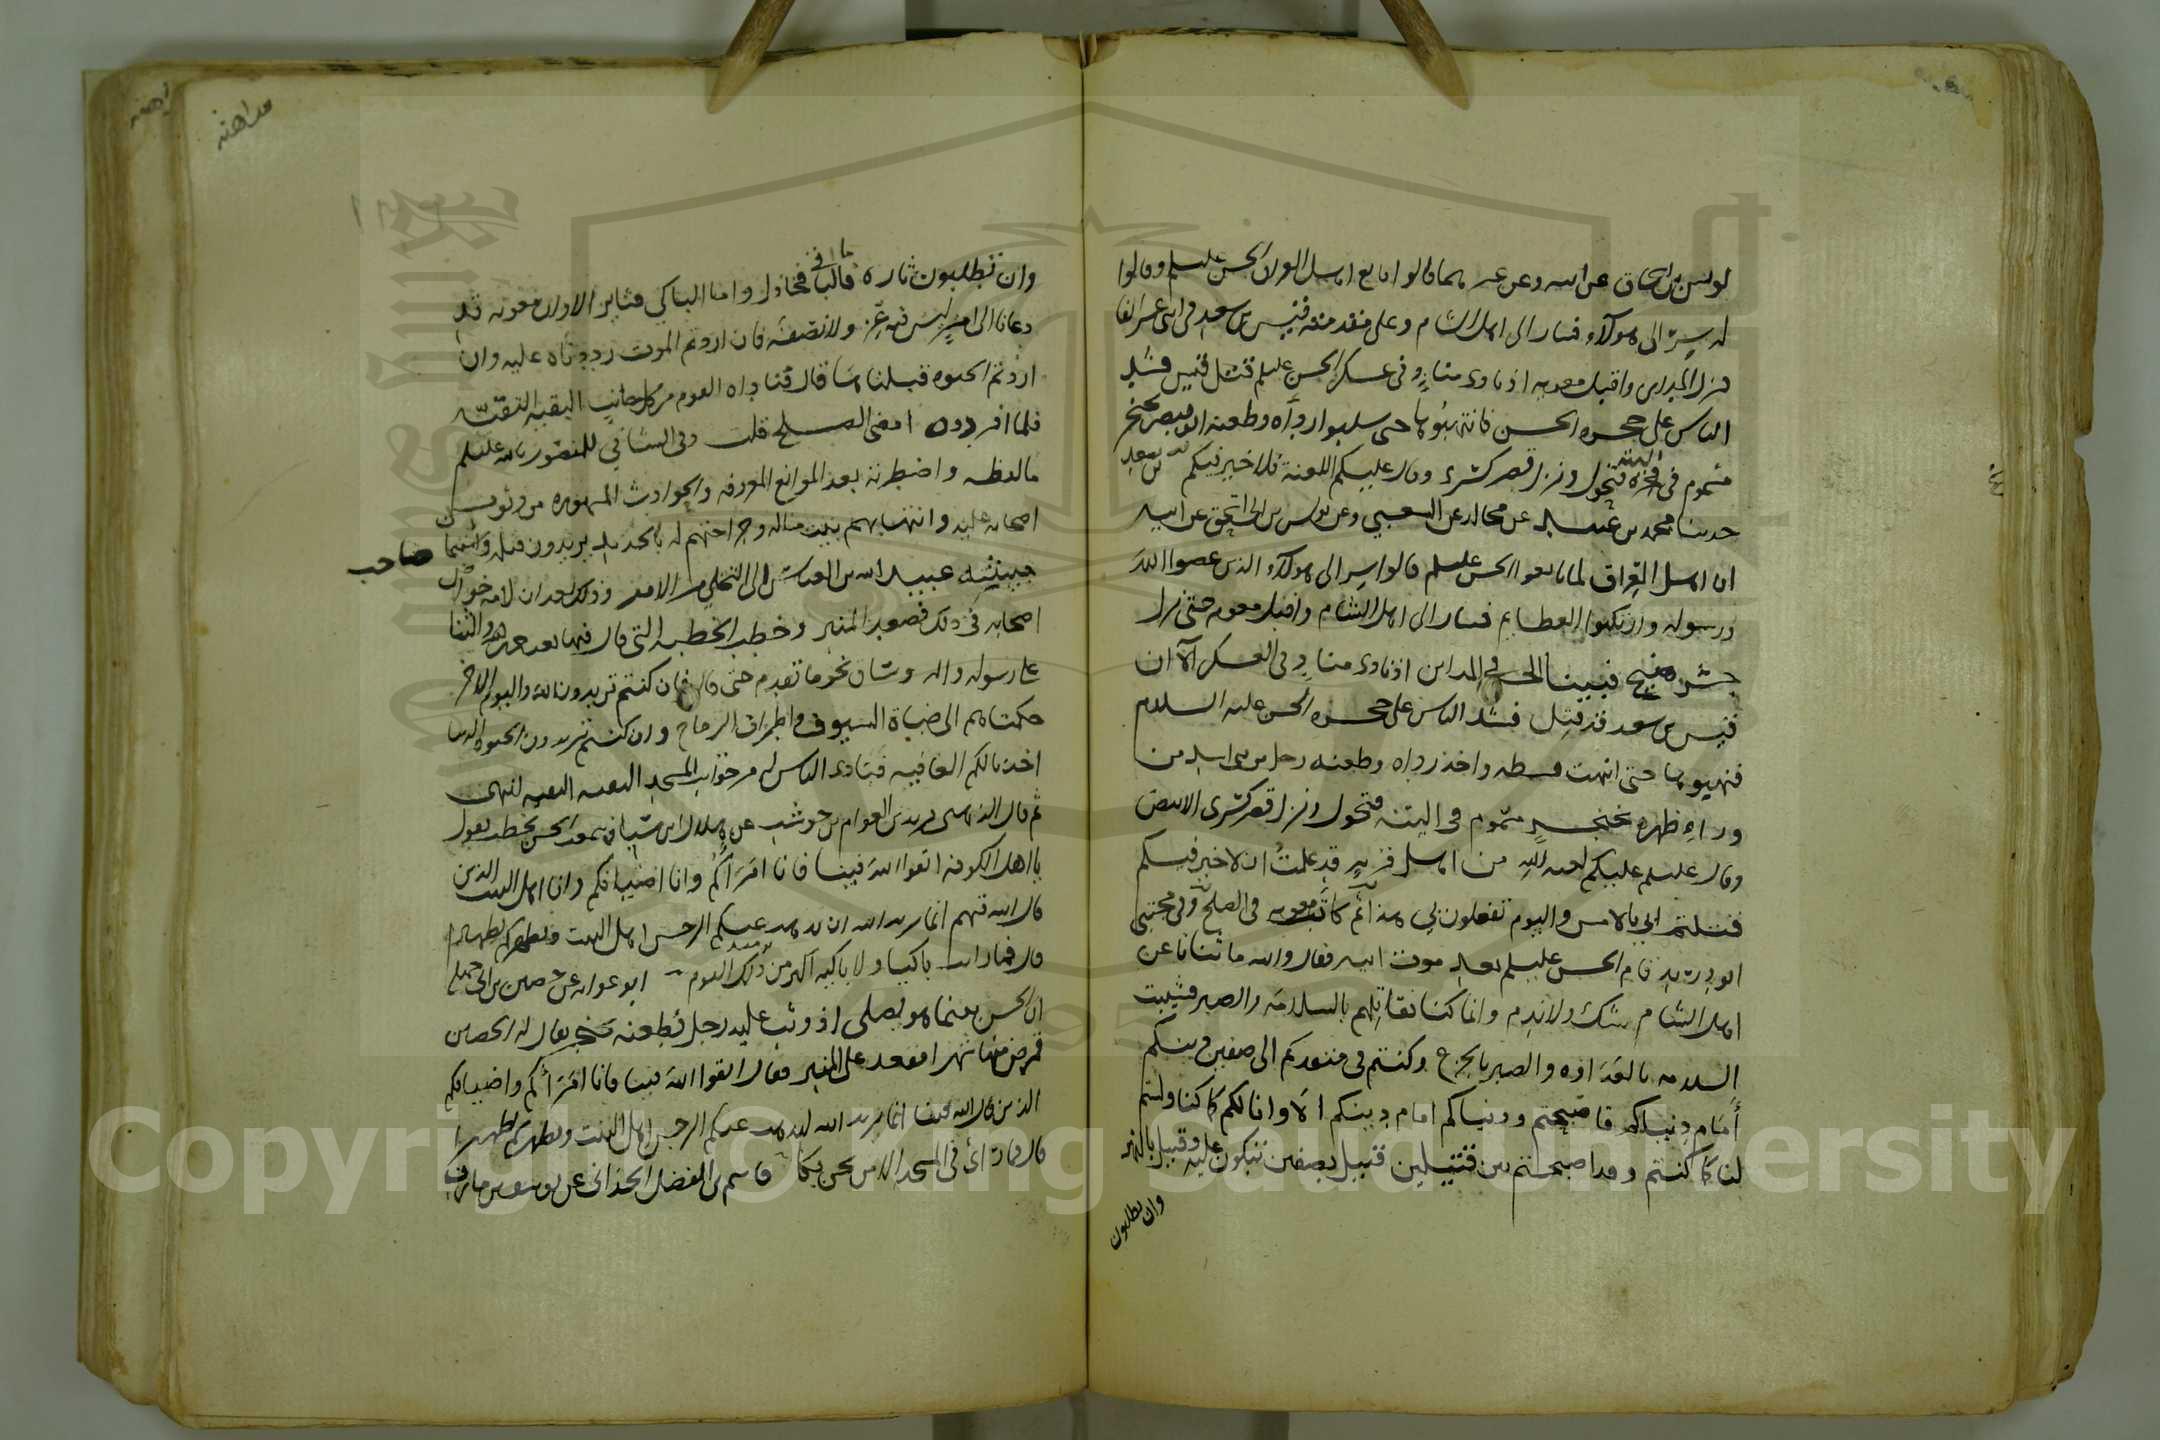 يونس بن اسحاق عن ابيه وعن غيره قالوا بايع اهل العراق الحسن عليلم وقالوا
له سر الى هولاء فسار الى اهل الشام وعلى مقدمته قيس بن سعد في اثني عشر الفا
فنزل المداين واقبل معويه اذ نادى مناد في عسكر الحسن عليلم قتل قيس فشد
الناس على حجره الحسن فانتهبوها حتى سلبوا رداه وطعنه بخنجر
مسموم في فتحول ونزل قصر كسرى وقال عليكم اللعنة فلا خير فيكم
حدثنا محمد بن عبيد عن مجالد عن الشعبي وعن يونس بن ابي اسحق عن ابيه
ان اهل العراق لما بايعوا الحسن عليلم قالوا سر الى هولاء الذين عصوا الله
ورسوله وارتكبوا العظايم فسار الى اهل الشام واقبل معويه حتى نزل
جسر منبج فبينا الحسن في المداين اذ نادى مناد في العسكر الا ان
قيس بن سعد قد قتل فشد الناس على حجره الحسن عليه السلام
فنهبوها حتى انتهبت بسطه واخذ رداه وطعنه رجل من بني اسد من
وراء ظهره بخنجر مسموم في اليته فتحول ونزل قصر كسرى الابيض
وقال عليلم عليكم لعنه الله من اهل قريه قد علمت ان لا خير فيكم
قتلتم ابي بالامس واليوم تفعلون بي هذا ثم كاتب معويه في الصلح وفي مجتبى
ابن دريد قام الحسن عليلم بعد موت ابيه فقال والله ما ثنانا عن
اهل الشام شك ولا ندم وانما كنا نقاتلهم بالسلامه والصبر فشيبت
السلامه بالعداوه والصبر بالجزع وكنتم في منتدبكم الى صفين ودينكم
امام دنياكم فاصبحتم ودنياكم امام دينكم الا وانا لكم كما كنا ولستم
لنا كما كنتم وقد اصبحتم بين قتيلين قتيل بصفين تبكون عليه وقتيل بالنهر
وان تطلبون
مداهنه
وان تطلبون ثاره فالباقي فخاذل واما الباكي فثاير الا وان معويه قد
دعانا الى امر ليس فيه عز ولا نصفه فان اردتم الموت رددناه عليه وان
اردتم الحيوه قبلنا قال فناداه القوم من كل جانب البقيه البقيه
فلما افردوه امضى الصلح قلت وفي الشافي للمنصور بالله عليلم
ما لفظه واضطرته بعد الموانع المعروفه والحوادث المشهوره من وثوب
اصحابه عليه وانتهابهم بيت ماله وجراحتهم له بالحديد يريدون قتله
صاحب
جيشه عبيد الله بن العباس الى التخلي من الامر وذلك بعد ان لامه خواص
اصحابه في ذلك فصعد المنبر وخطب الخطبه التي قال فيها بعد حمد الله والثنا
على رسوله واله وساق نحو ما تقدم حتى قال فان كنتم تريدون الله واليوم الاخر
حكمناهم الى ضباة السيوف واطراف الرماح وان كنتم تريدون الحيوه الدنيا
اخذنا لكم العافيه فنادى الناس من جوانب المسجد البقيه البقيه انتهى
ثم قال الذهبي يزيد بن العوام بن حوشب عن هلال بن يساف سمعت الحسن يخطب يقول
يا اهل الكوفه اتقوا الله فينا فانا امراؤكم وانا اضيافكم وانا اهل البيت الذين
قال الله فيهم انما يريد الله ان يذهب عنكم الرجس اهل البيت ويطهركم تطهيرا
قال فما رايت باكيا ولا باكيه اكثر من ذلك اليوم ابو عوانه عن حصين عن ابي جميله
ان الحسن بينما هو يصلي اذ وثب عليه رجل فطعنه بخنجر يقال له الحصين
فمرض منها شهرا فقعد على المنبر فقال اتقوا الله فينا فانا امراؤكم واضيافكم
الذين قال الله فينا انما يريد الله ليذهب عنكم الرجس اهل البيت ويطهركم تطهيرا
قال فما رأى في المسجد الا من يحن بكاء قاسم بن الفضل الحداني عن يوسف بن مازن
Copyright © King Saud University